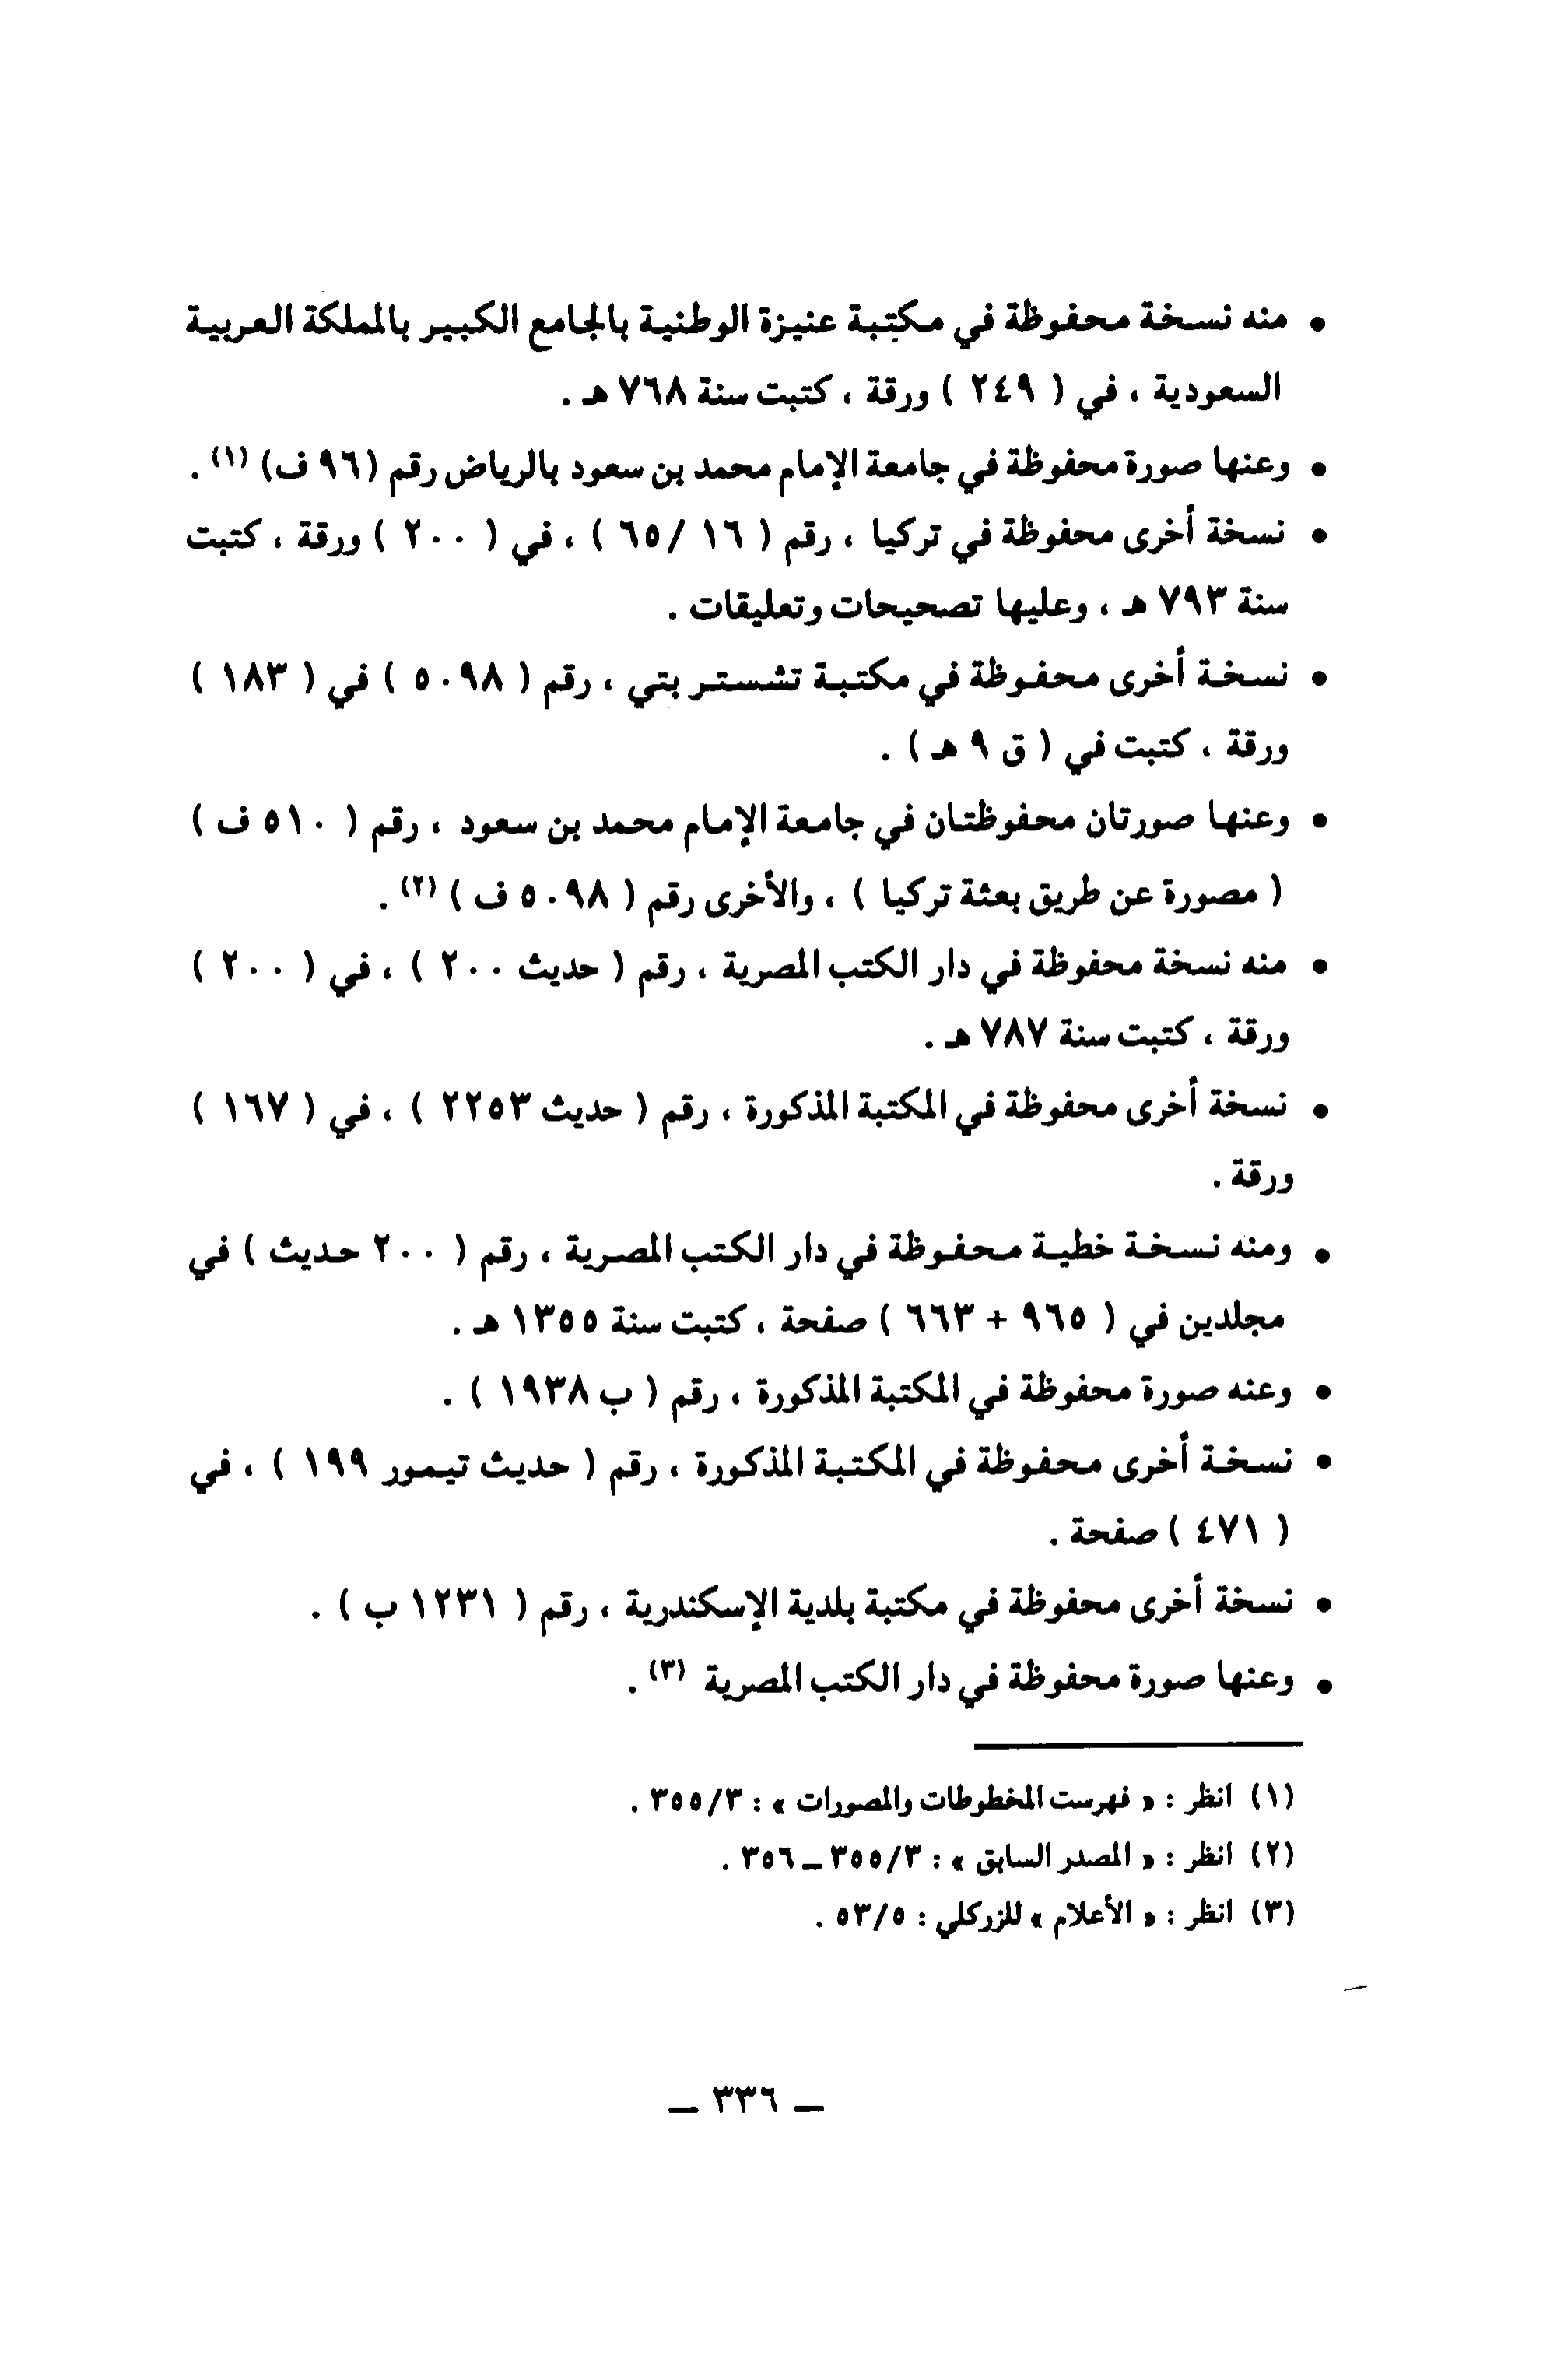 • منه نسخة محفوظة في مكتبة عنيزة الوطنية بالجامع الكبير بالمملكة العربية
السعودية ، في ( ٢٤٩ ) ورقة ، كتبت سنة ٧٦٨ هـ .
• وعنها صورة محفوظة في جامعة الإمام محمد بن سعود بالرياض رقم (٩٦ ف) (١) .
• نسخة أخرى محفوظة في تركيا ، رقم ( ١٦ /٦٥ ) ، في ( ٢٠٠ ) ورقة ، كتبت
سنة ٧٩٣ هـ ، وعليها تصحيحات وتعليقات .
• نسخة أخرى محفوظة في مكتبة تشستر بتي ، رقم ( ٥٠٩٨ ) في ( ١٨٣ )
ورقة ، كتبت في ( ق ٩ هـ ) .
• وعنها صورتان محفوظتان في جامعة الإمام محمد بن سعود ، رقم ( ٥١٠ ف )
( مصورة عن طريق بعثة تركيا ) ، والأخرى رقم ( ٥٠٩٨ ف ) (٢) .
• منه نسخة محفوظة في دار الكتب المصرية ، رقم ( حديث ٢٠٠ ) ، في ( ٢٠٠ )
ورقة ، كتبت سنة ٧٨٧ هـ .
• نسخة أخرى محفوظة في المكتبة المذكورة ، رقم ( حديث ٢٢٥٣ ) ، في ( ١٦٧ )
ورقة .
• ومنه نسخة خطية محفوظة في دار الكتب المصرية ، رقم ( ٢٠٠ حديث ) في
مجلدين في ( ٩٦٥ + ٦٦٣ ) صفحة ، كتبت سنة ١٣٥٥ هـ .
• وعنه صورة محفوظة في المكتبة المذكورة ، رقم ( ب ١٩٣٨ ) .
• نسخة أخرى محفوظة في المكتبة المذكورة ، رقم ( حديث تيمور ١٩٩ ) ، في
( ٤٧١ ) صفحة .
• نسخة أخرى محفوظة في مكتبة بلدية الإسكندرية ، رقم ( ١٢٣١ ب ) .
• وعنها صورة محفوظة في دار الكتب المصرية (٣) .
(١) انظر : « فهرست المخطوطات والمصورات » : ٣٥٥/٣ .
(٢) انظر : « المصدر السابق » : ٣٥٥/٣ ــ ٣٥٦ .
(٣) انظر : « الأعلام » للزركلي : ٥٣/٥ .
ــ ٣٣٦ ــ